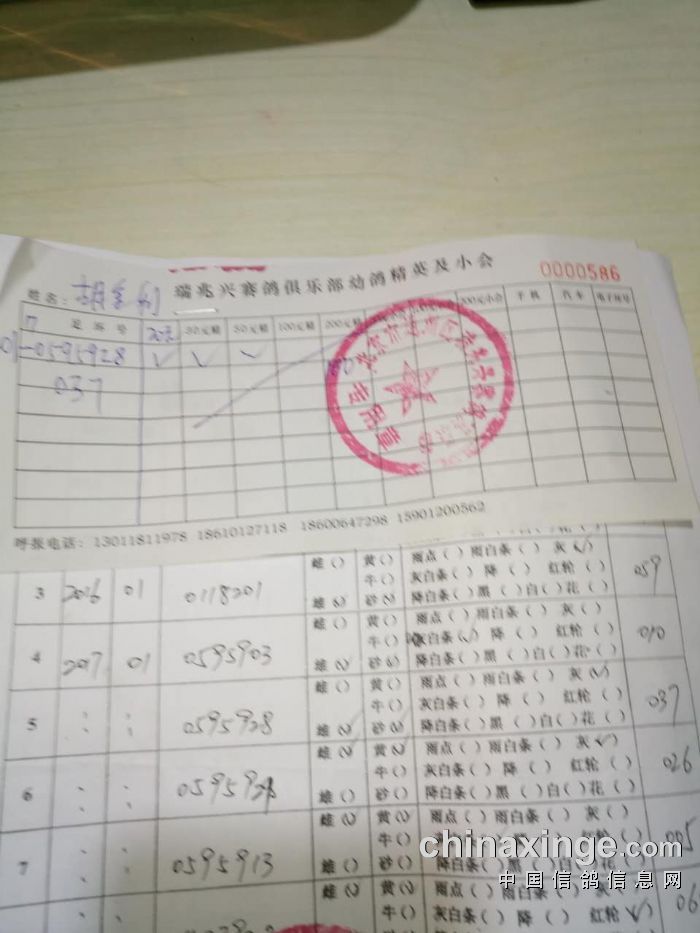 瑞兆兴赛鸽俱乐部幼鸽精英及小会
0000586
姓名：胡
足环号 30元精 50元精 100元精 200元精 手机 汽车 电子环号
01-0595928 √ √ √
037
呼报电话：13011811978 18610127118 18600647298 15901200562
雌() 黄() 雨点() 雨白条() 灰(√)
3 2016 01 0118201 牛() 灰白条() 降() 红轮() 059
雄(√) 砂(√) 降白条() 黑() 白() 花()
雌() 黄() 雨点() 雨白条() 灰()
4 2017 01 0595903 牛() 灰白条(√) 降() 红轮() 010
雄(√) 砂(√) 降白条() 黑() 白() 花()
雌() 黄() 雨点() 雨白条() 灰(√)
5 : : 0595928 牛() 灰白条() 降() 红轮() 037
雄(√) 砂(√) 降白条() 黑() 白() 花()
雌(√) 黄(√) 雨点() 雨白条() 灰(√)
6 : : 牛() 灰白条() 降() 红轮() 026
雄() 砂() 降白条() 黑() 白() 花()
雌(√) 黄(√) 雨点() 雨白条() 灰()
7 : : 0595913 牛() 005
雄() 砂() 降白条() 黑() 白() 花()
雌(√) 黄(√) 雨点() 雨白条() 灰()
牛() 灰白条() 降() 红轮(√)
chinaxinge.com
中国信鸽信息网